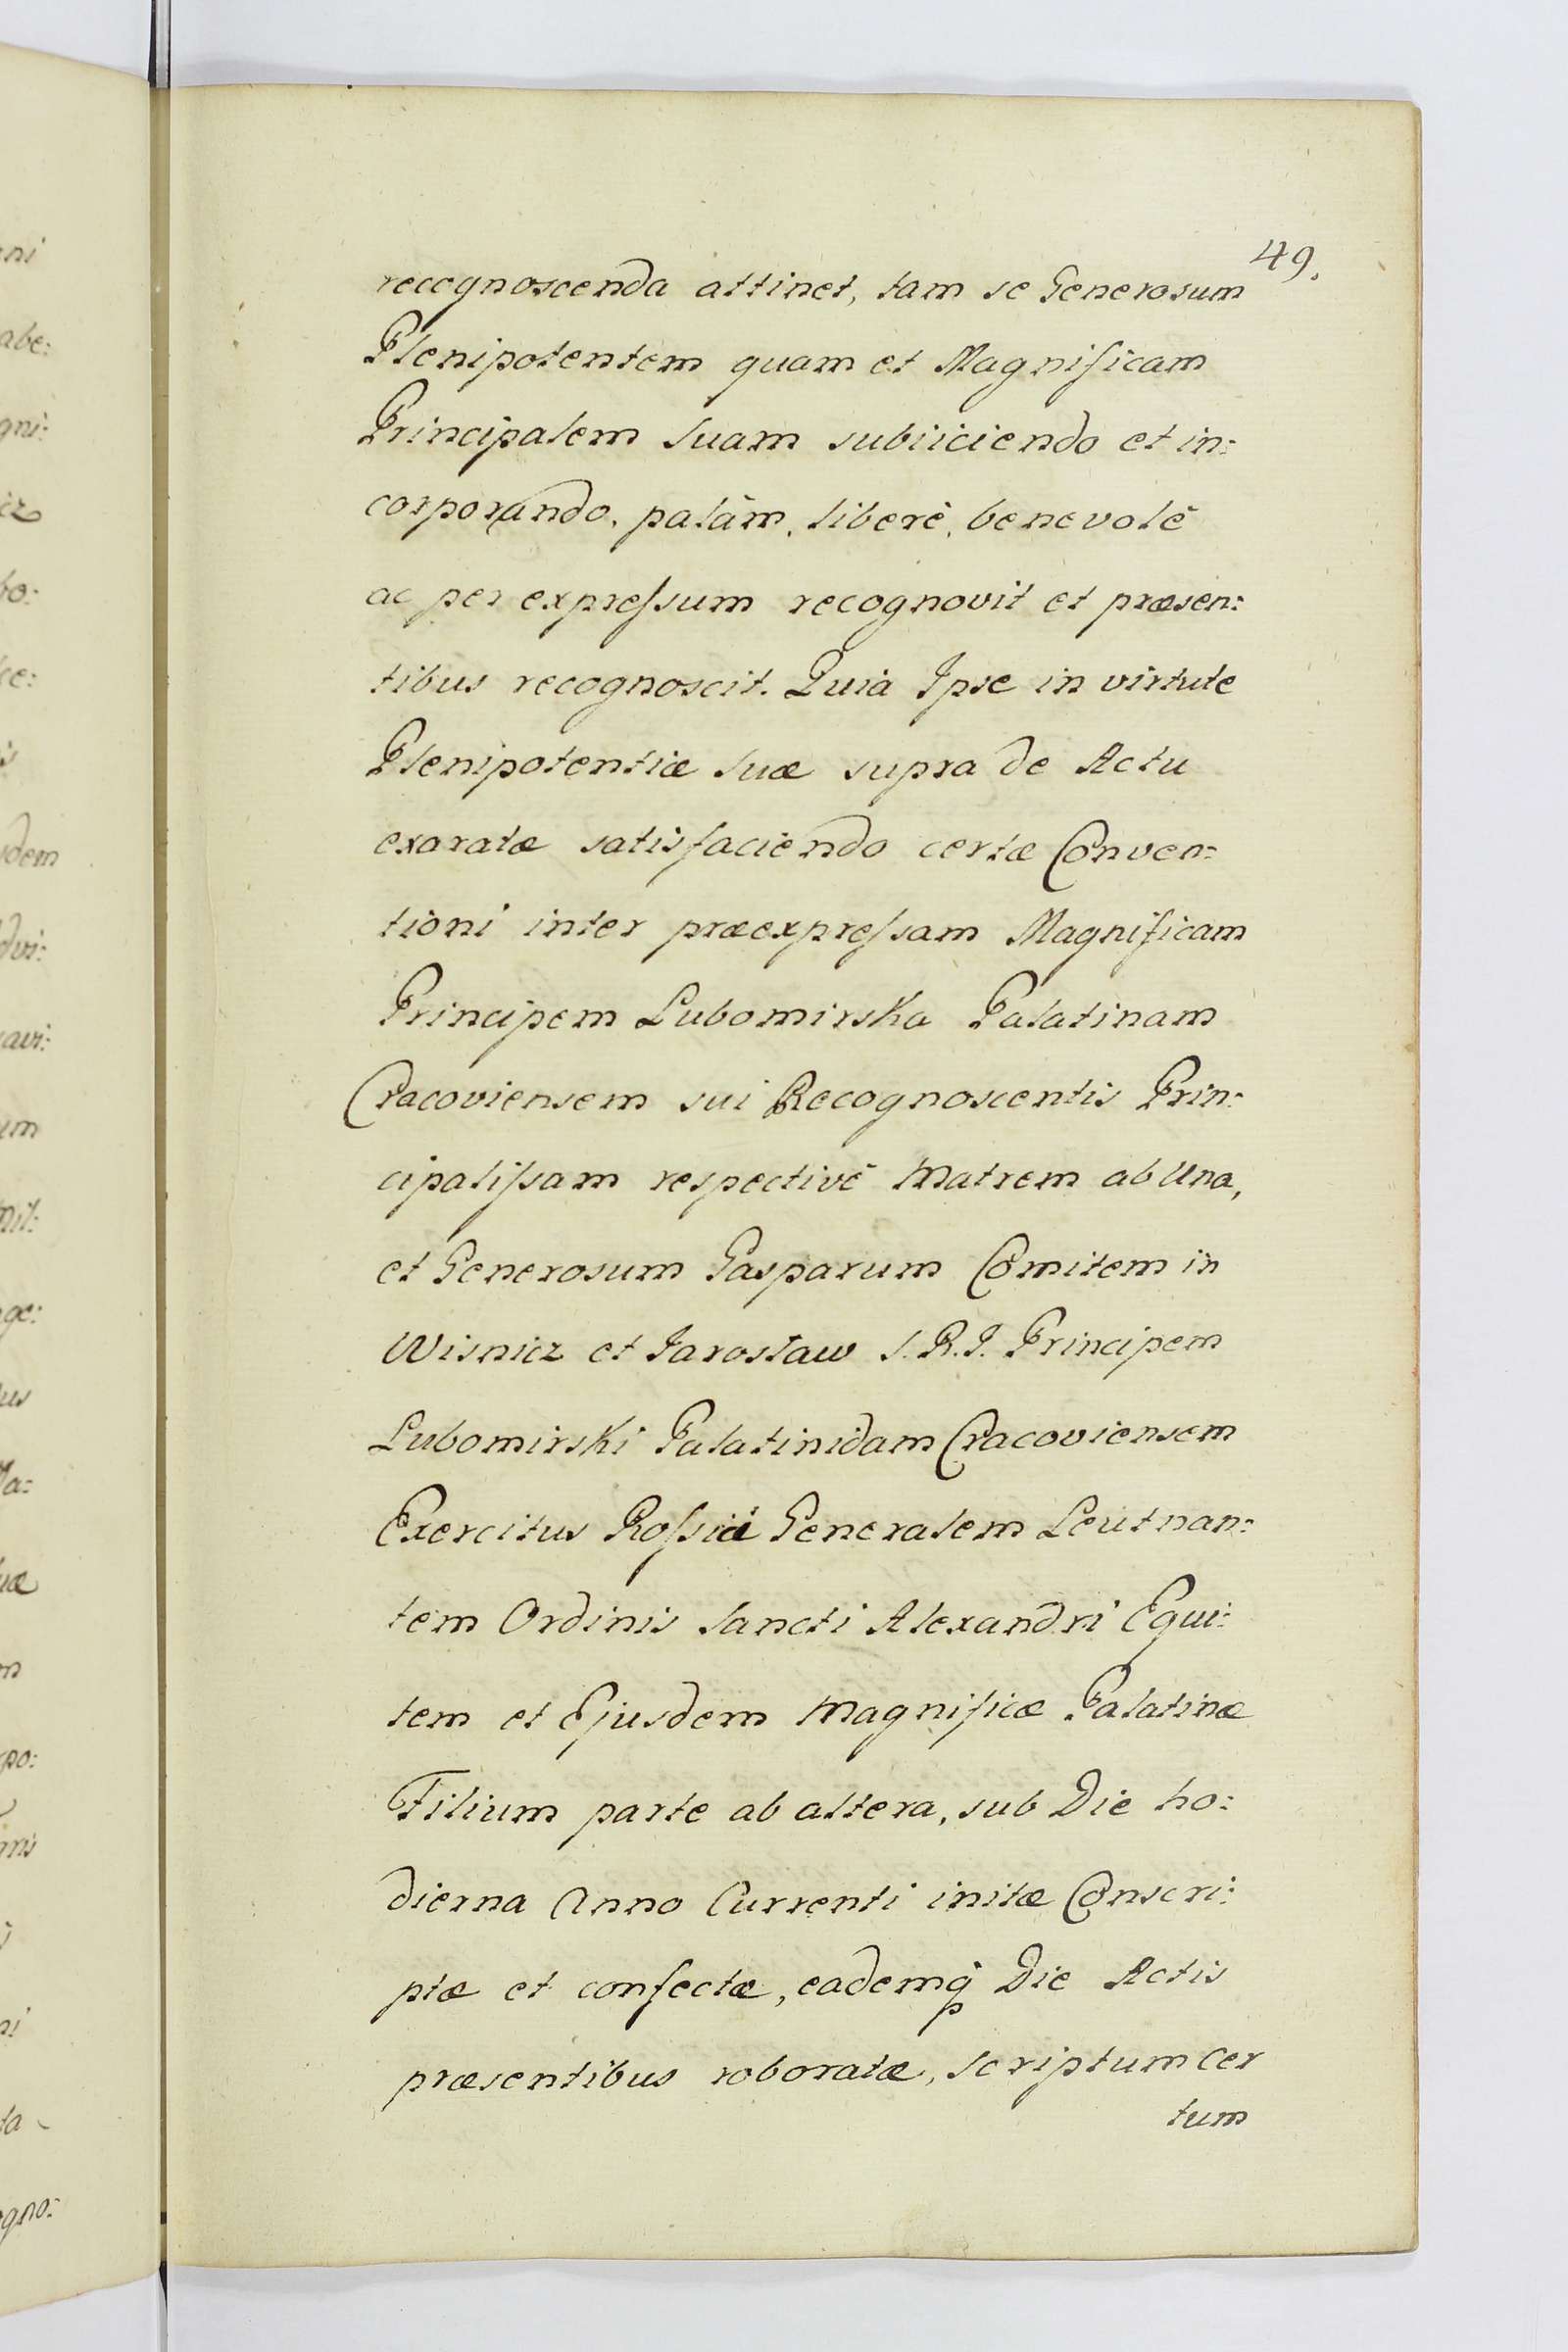 49.
recognoscenda attinet, tam se Generosum
Plenipotentem quam et Magnificam
Principalem Suam subiiciendo et in:
corporando, palàm, liberè, benevolè
ac per expreſsum recognovit et præsen:
tibus recognoscit. Quia Ipse in virtute
Plenipotentiæ Suæ supra de Actu
exaratæ satisfaciendo certæ Conven:
tioni inter præexpreſsam Magnificam
Principem Lubomirska Palatinam
Cracoviensem sui Recognoscentis Prin:
cipaliſsam respectivè Matrem ab Una,
et Generosum Gasparum Comitem in
Wisnicz et Jarosław S. R. J. Principem
Lubomirski Palatinidam Cracoviensem
Exercitus Roſsiæ Generalem Leutnan:
tem Ordinis Sancti Alexandri Equi:
tem et Ejusdem Magnificæ Palatinæ
Filium parte ab altera, sub Die ho:
dierna Anno Currenti initæ Conscri:
ptæ et confectæ, eademq̃ Die Actis
præsentibus roboratæ, Scriptum cer
tum
ni
abe:
gni:
icz
bo:
ce:
is
dem
dvi:
avi:
um
mit:
ge:
us
Ma:
uæ
m
po:
nis
ni
ta
gno: